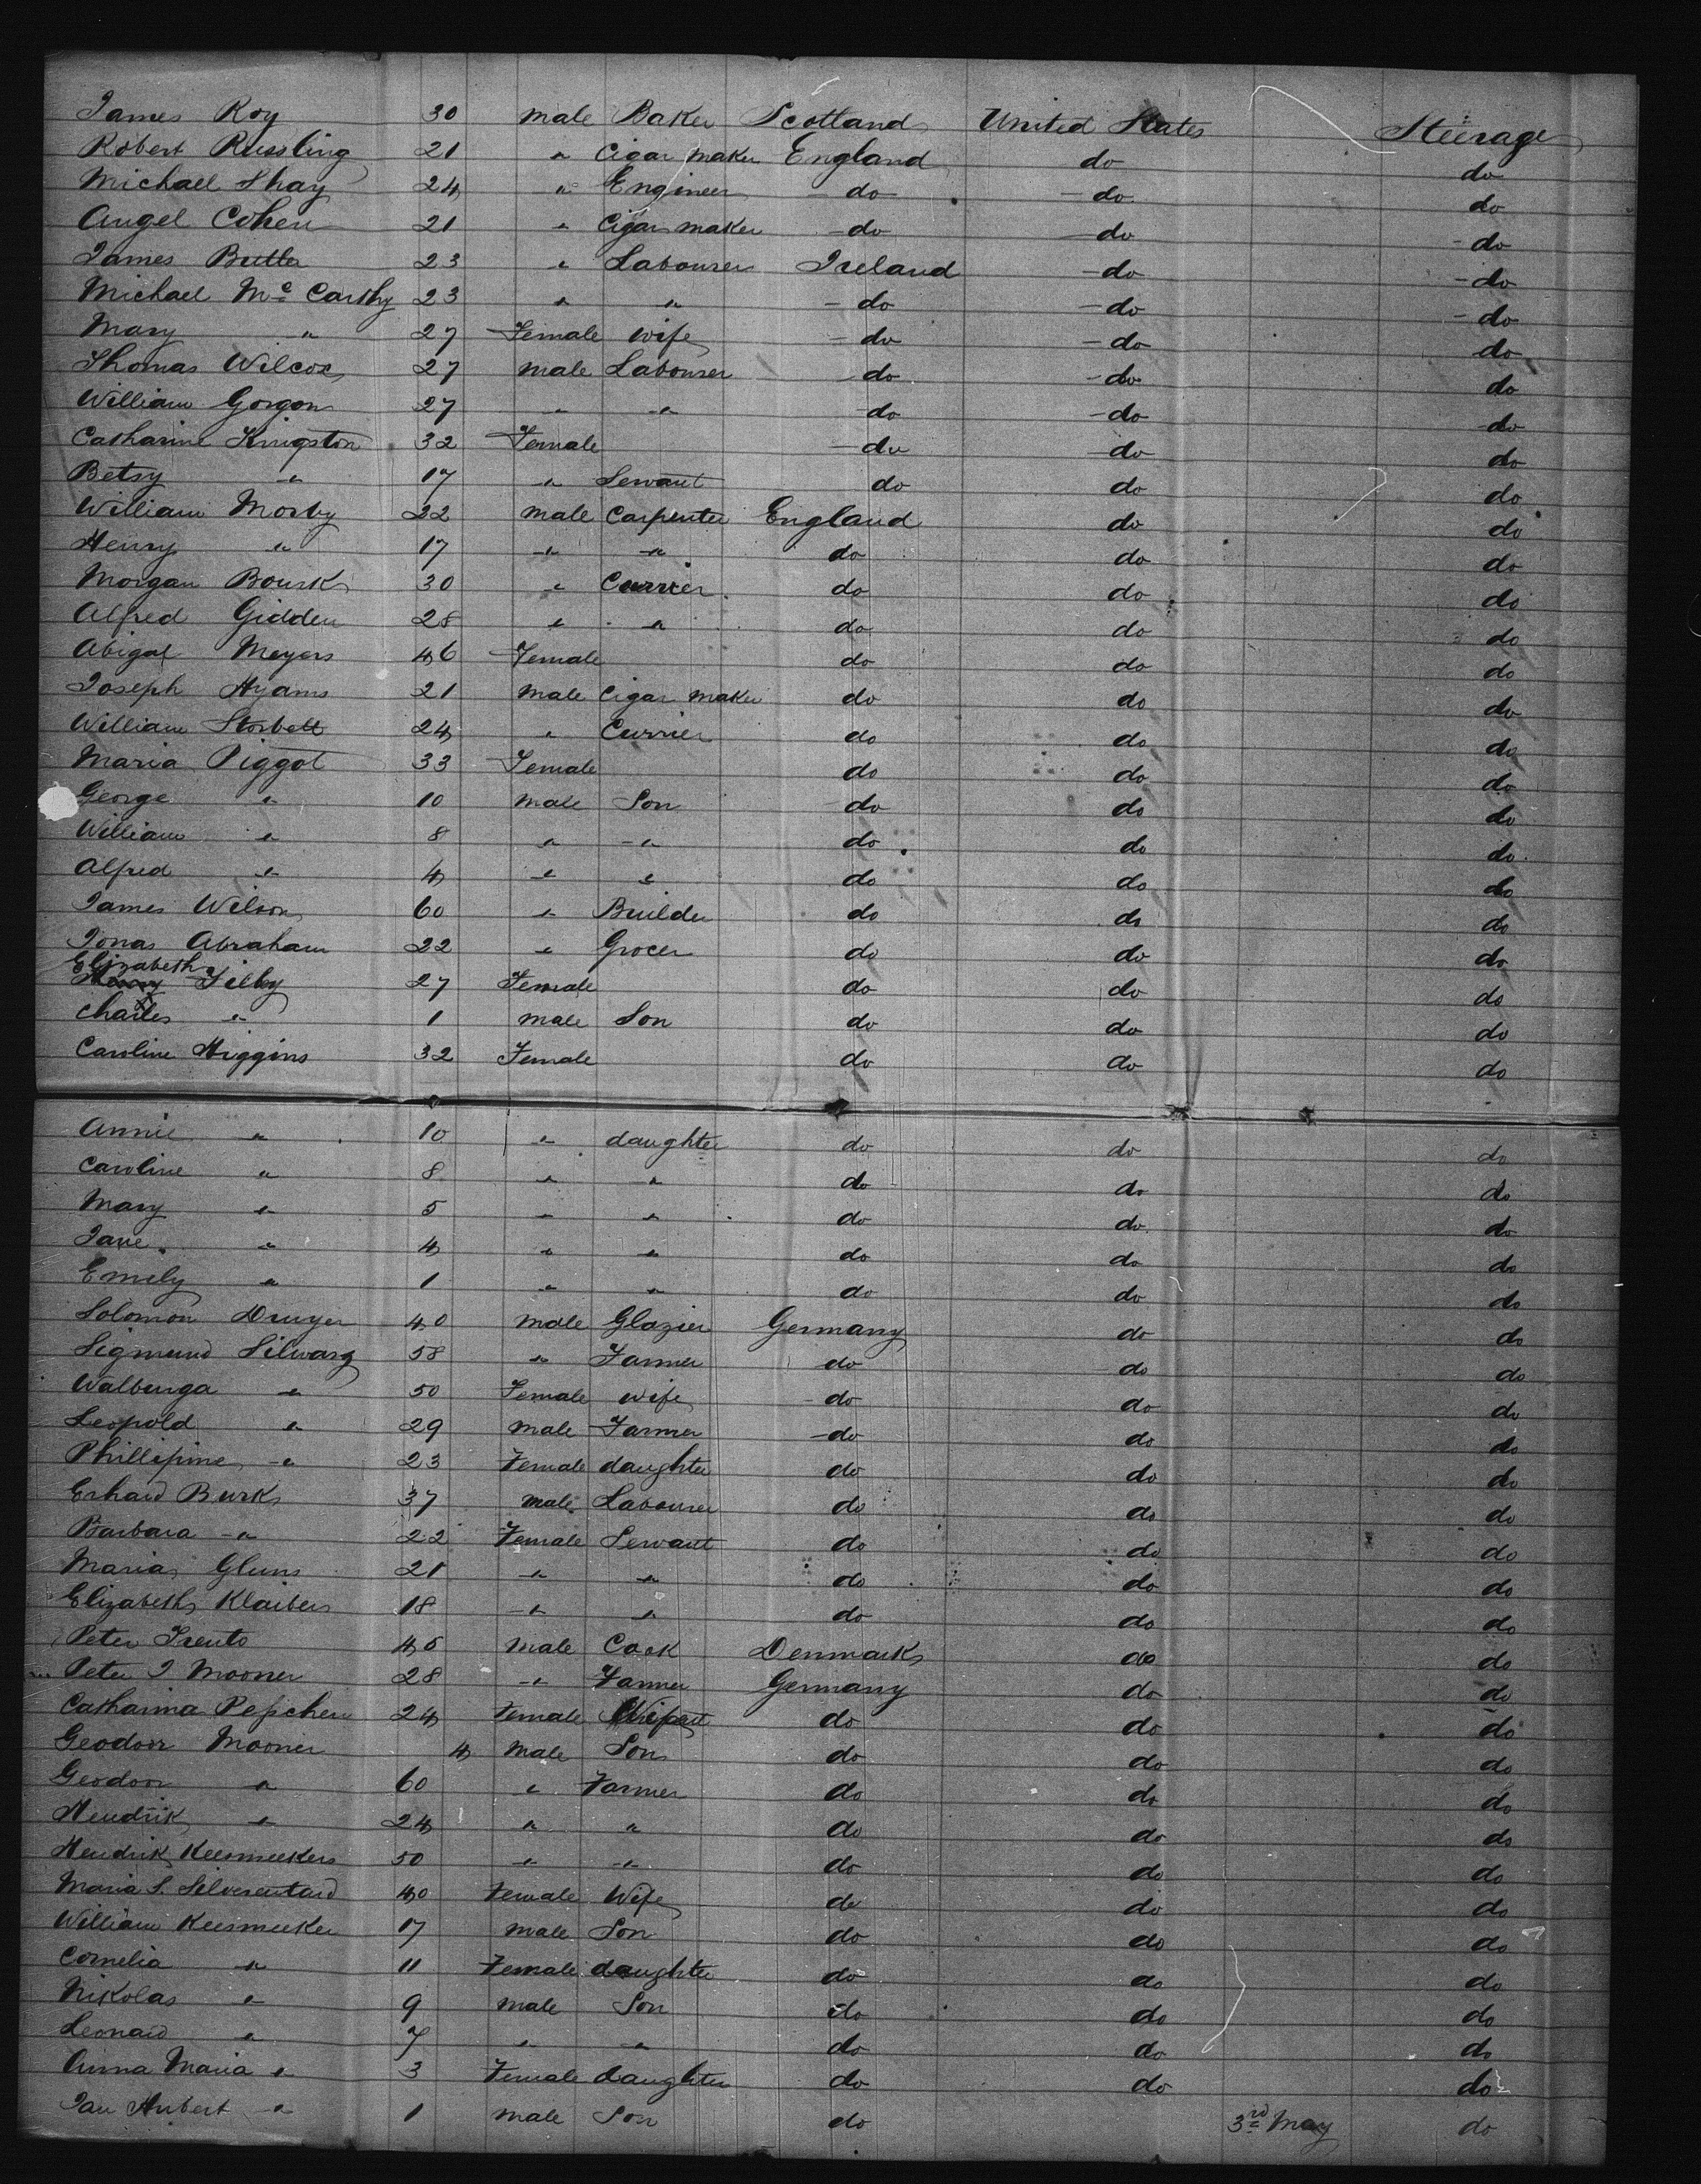 James Roy 30 male Baker Scotland United States Steerage
Robert Russling 21 " Cigar maker England do do
Michael Shay 24 " Engineer do do do
Angel Cohen 21 " Cigar maker do do do
James Butler 23 " Labourer Ireland do do
Michael Mc Carthy 23 " " do do do
Mary " 27 Female Wife do do do
Thomas Wilcox 27 male Labourer do do do
William Gorgon 27 " " do do do
Catharine Kingston 32 Female do do do
Betsy " 17 " Servant do do do
William Morby 22 male Carpenter England do do
Henry " 17 " " do do do
Morgan Bourk 30 " Currier do do do
Alfred Gidden 28 " " do do do
Abigal Meyers 46 Female do do do
Joseph Hyams 21 male Cigar maker do do do
William Storbett 24 " Currier do do do
Maria Piggot 33 Female do do do
George " 10 male Son do do do
William " 8 " " do do do
Alfred " 4 " " do do do
James Wilson 60 " Builder do do do
Jonas Abraham 22 " Grocer do do do
Elizabeth
Tilby 27 Female do do do
Charles " 1 male Son do do do
Caroline Higgins 32 Female do do do
Annie " 10 " daughter do do do
Caroline " 8 " " do do do
Mary " 5 " " do do do
Jane " 4 " " do do do
Emily " 1 " " do do do
Solomon 40 male Glazier Germany do do
Sigmund Silwarg 58 " Farmer do do do
Walburga " 50 Female Wife do do do
Leopold " 29 male Farmer do do do
Phillipine " 23 Female daughter do do do
Erhard Burk 37 male Labourer do do do
Barbara " 22 Female Servant do do do
Maria Gluns 21 " " do do do
Elizabeth Klaiber 18 " " do do do
Peter Trento 45 male Cook Denmark do do
Peter J Mooner 28 " Farmer Germany do do
Catharina Pepchen 24 Female do do do
Geodoor Mooner 4 male Son do do do
Geodoor " 60 " Farmer do do do
Hendrik " 24 " " do do do
Hendrik Keesmeekers 50 " " do do do
Maria S. Silverentand 40 Female Wife do do do
William Keesmeeker 17 male Son do do do
Cornelia " 11 Female daughter do do do
Nikolas " 9 male Son do do do
Leonard " 7 " " do do do
Anna Maria " 3 Female daughter do do do
Jan Hubert " 1 male Son do 3rd May do